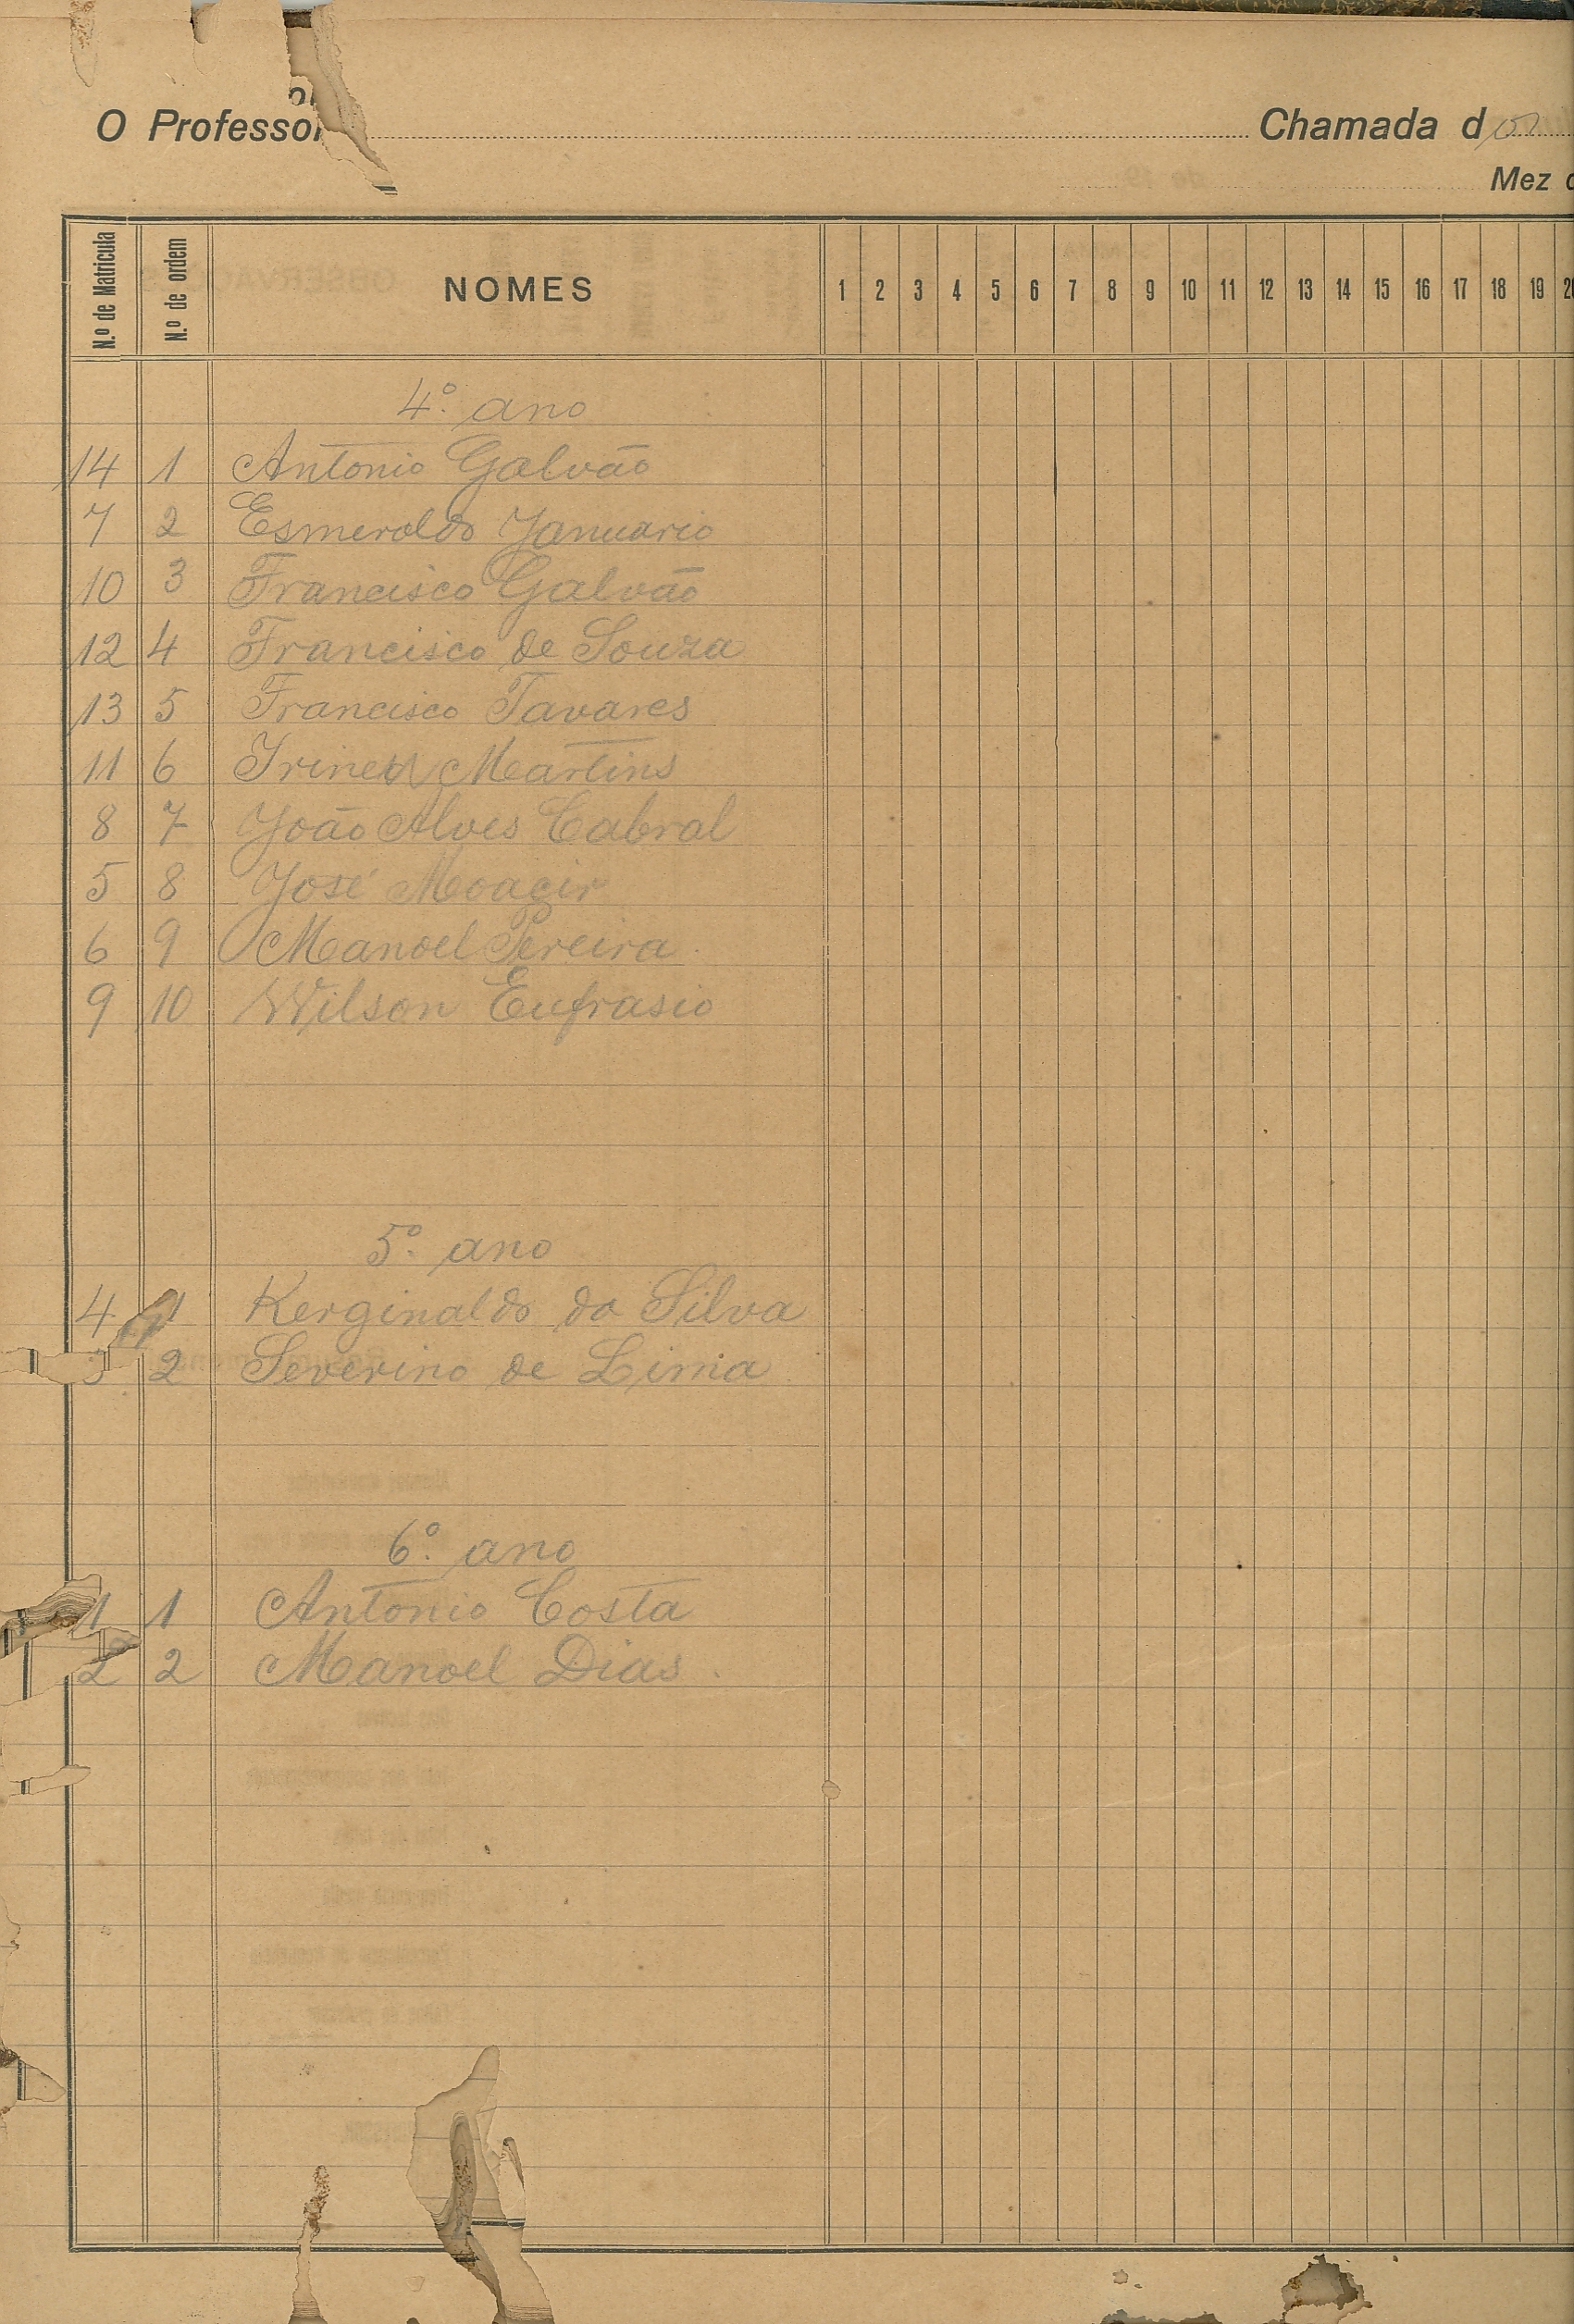 O Professor Chamada d
Mez
N.º de Matricula N.º de ordem NOMES 1 2 3 4 5 6 7 8 9 10 11 12 13 14 15 16 17 18 19 20
4º. ano
14 1 Antonio Galvão
7 2 Esmeraldo Januario
10 3 Francisco Galvão
12 4 Francisco de Souza
13 5 Francisco Tavares
11 6 Irineu Martins
8 7 João Alves Cabral
5 8 José Moacir
6 9 Manoel Pereira
9 10 Wilson Eufrasio
5º. ano
4 1 Kerginaldo da Silva
3 2 Severino de Lima
6º. ano
1 1 Antonio Costa
2 2 Manoel Dias.